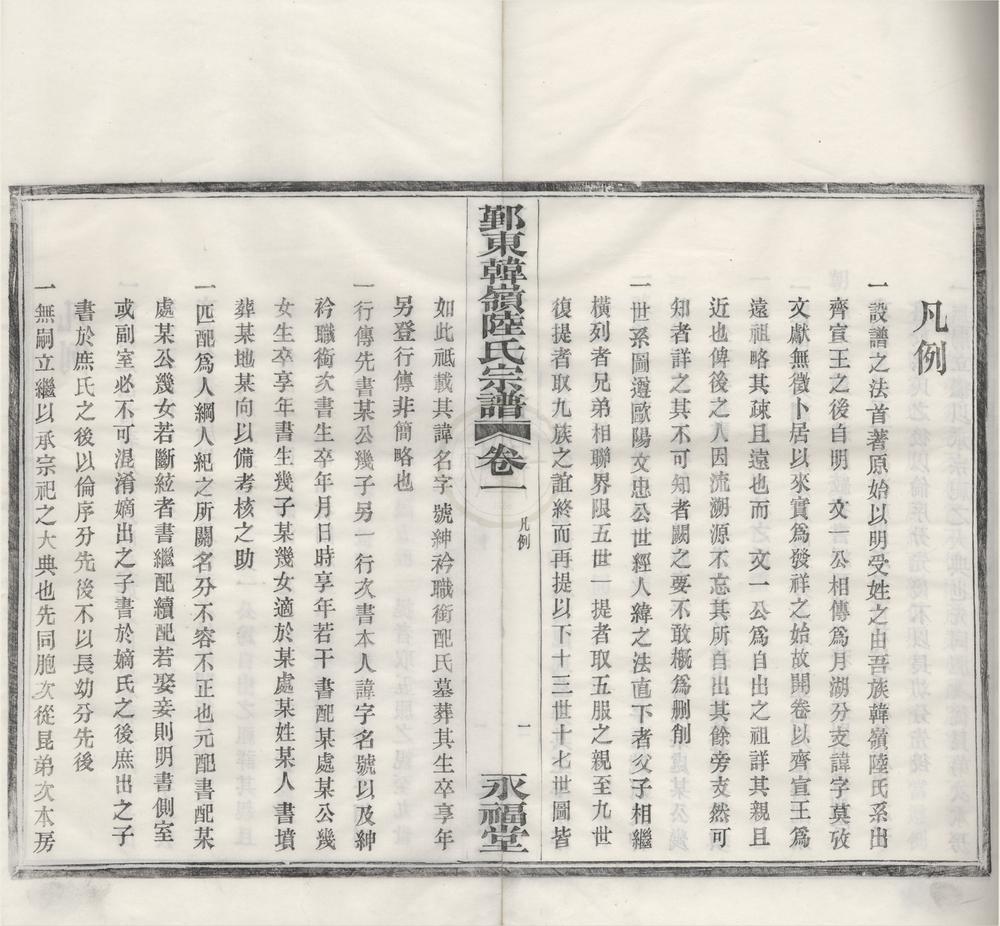 凡例
一設譜之法首著原始以明受姓之由吾族韓嶺陸氏系出
齊宣王之後自明 文 公相傳爲月湖分支諱字莫攷
文獻無徵卜居以來實爲發祥之始故開卷以齊宣王爲
遠祖略其疎且遠也而 文一公爲自出之祖詳其親且
近也俾後之人因流溯源不忘其所自出其餘旁支然可
知者詳之其不可知者闕之要不敢槪爲删削
一世系圖遵歐陽文忠公世經人緯之法直下者父子相繼
橫列者兄弟相聯界限五世一提者取五服之親至九世
復提者取九族之誼終而再提以下十三世十七世圖皆
鄞東韓嶺陸氏宗譜
卷一
凡例
一
永福堂
如此祗載其諱名字號紳衿職銜配氏墓葬其生卒享年
另登行傳非簡略也
一行傳先書某公幾子另一行次書本人諱字名號以及紳
衿職銜次書生卒年月日時享年若干書配某處某公幾
女生卒享年書生幾子某幾女適於某處某姓某人書墳
葬某地某向以備考核之助
一匹配爲人綱人紀之所關名分不容不正也元配書配某
處某公幾女若斷絃者書繼配續配若娶妾則明書側室
或副室必不可混淆嫡出之子書於嫡氏之後庶出之子
書於庶氏之後以倫序分先後不以長幼分先後
一無嗣立繼以承宗祀之大典也先同胞次從昆弟次本房